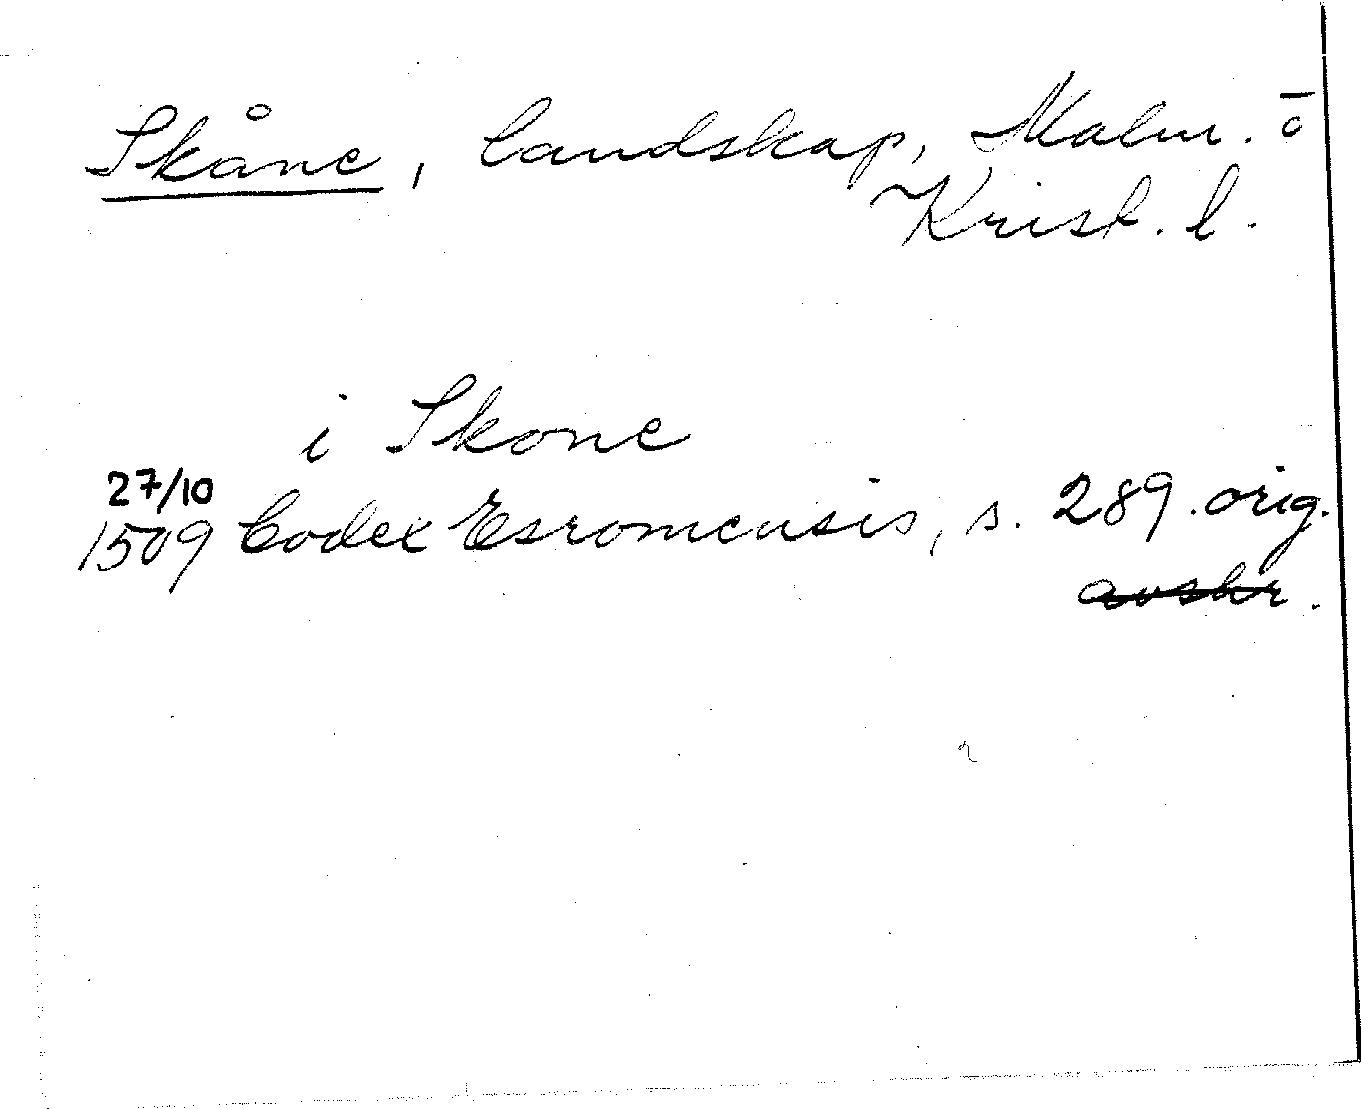 Skåne, landskap, Malm. ō
Krist. l.
i Skone
27/10
1509 Codex Esromensis, s. 289. orig.
avskr.